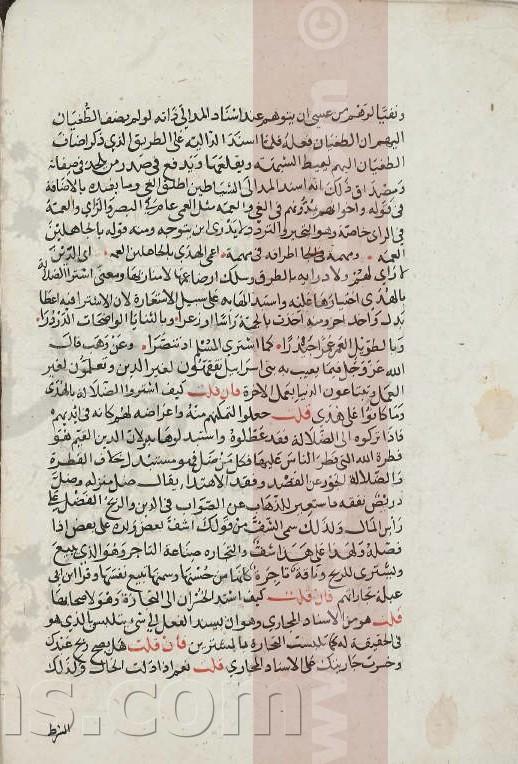 ونفيا لوهم من عسى ان يتوهم عند اسناد المد الى ذاته لو لم يضف الطغيان
اليهم ان الطغيان فعله فلما اسند المد اليه على الطريق الذي ذكر اضاف
الطغيان اليهم ليميط الشبه ويقلعها ويدفع في صدر من يلحد في صفاته
ومصداق ذلك انه اسند المد الى الشياطين اطلق الغي وما يقيده بالاضافة
في قوله واخوانهم يمدونهم في الغي والعمه مثل العمى عام في البصر والراي والعمه
في الراي خاصة وهو التحير والتردد لا يدري اين يتوجه ومنه قوله بالجاهلين
العمه ومهمه اطرافه في مهمه اعمى الهدى بالجاهلين العمه اي الذين
لا راي لهم ولا دراية بالطرق وسلك ارضا عمها لا منار بها ومعنى اشترا الضلالة
بالهدى اختيارها عليه واستبدالها به على سبيل الاستعارة لان الاشترا فيه اعطا
بدل واخذ اخر ومنه اخذت بالجمة راسا ازعرا وبالثنايا الواضحات الدردرا
وبالطويل العمر عمرا جيدرا كما اشترى المسلم اذ تنصرا وعن وهب قال
الله عز وجل فيما يعيب به بني اسرايل تفقهون لغير الدين وتعلمون لغير
العمل وتبتاعون الدنيا بعمل الاخرة فان قلت كيف اشتروا الضلالة بالهدى
وما كانوا على هدى قلت جعلوا لتمكنهم منه واعراضه لهم كانه في ايديهم
فاذا تركوه الى الضلالة فقد عطلوه واستبدلوها به ولان الدين القيم هو
فطرة الله التي فطر الناس عليها فكل من ضل فهو مستبدل خلاف الفطرة
والضلالة الجور عن القصد وفقد الاهتدا يقال ضل منزله وضل
دريص نفقه فاستعير للذهاب عن الصواب في الدين والربح الفضل على
راس المال ولذلك سمي الشف من قولك اشف بعض ولده على بعض اذا
فضله ولهذا على هذا شف والتجارة صناعة التاجر وهو الذي يبيع
ويشتري للربح وناقة تاجرة كانها من حسنها وسمنها تبيع نفسها وقرا ابن ابي
عبلة تجاراتهم فان قلت كيف اسند الخسران الى التجارة وهو لاصحابها
قلت هو من الاسناد المجازي وهو ان يسند الفعل الى شي يتلبس بالذي هو
في الحقيقة له كما تلبست التجارة بالمشترين فان قلت هل يصح ربح عبدك
وخسرت جاريتك على الاسناد المجازي قلت نعم اذا دلت الحال وكذلك
الشرط
©
www
ns.com